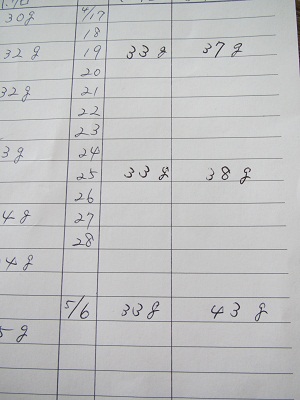 30g 4/17
18
32g 19 33g 37g
20
32g 21
22
23
3g 24
25 33g 38g
26
4g 27
28
4g
5/6 33g 43g
5g